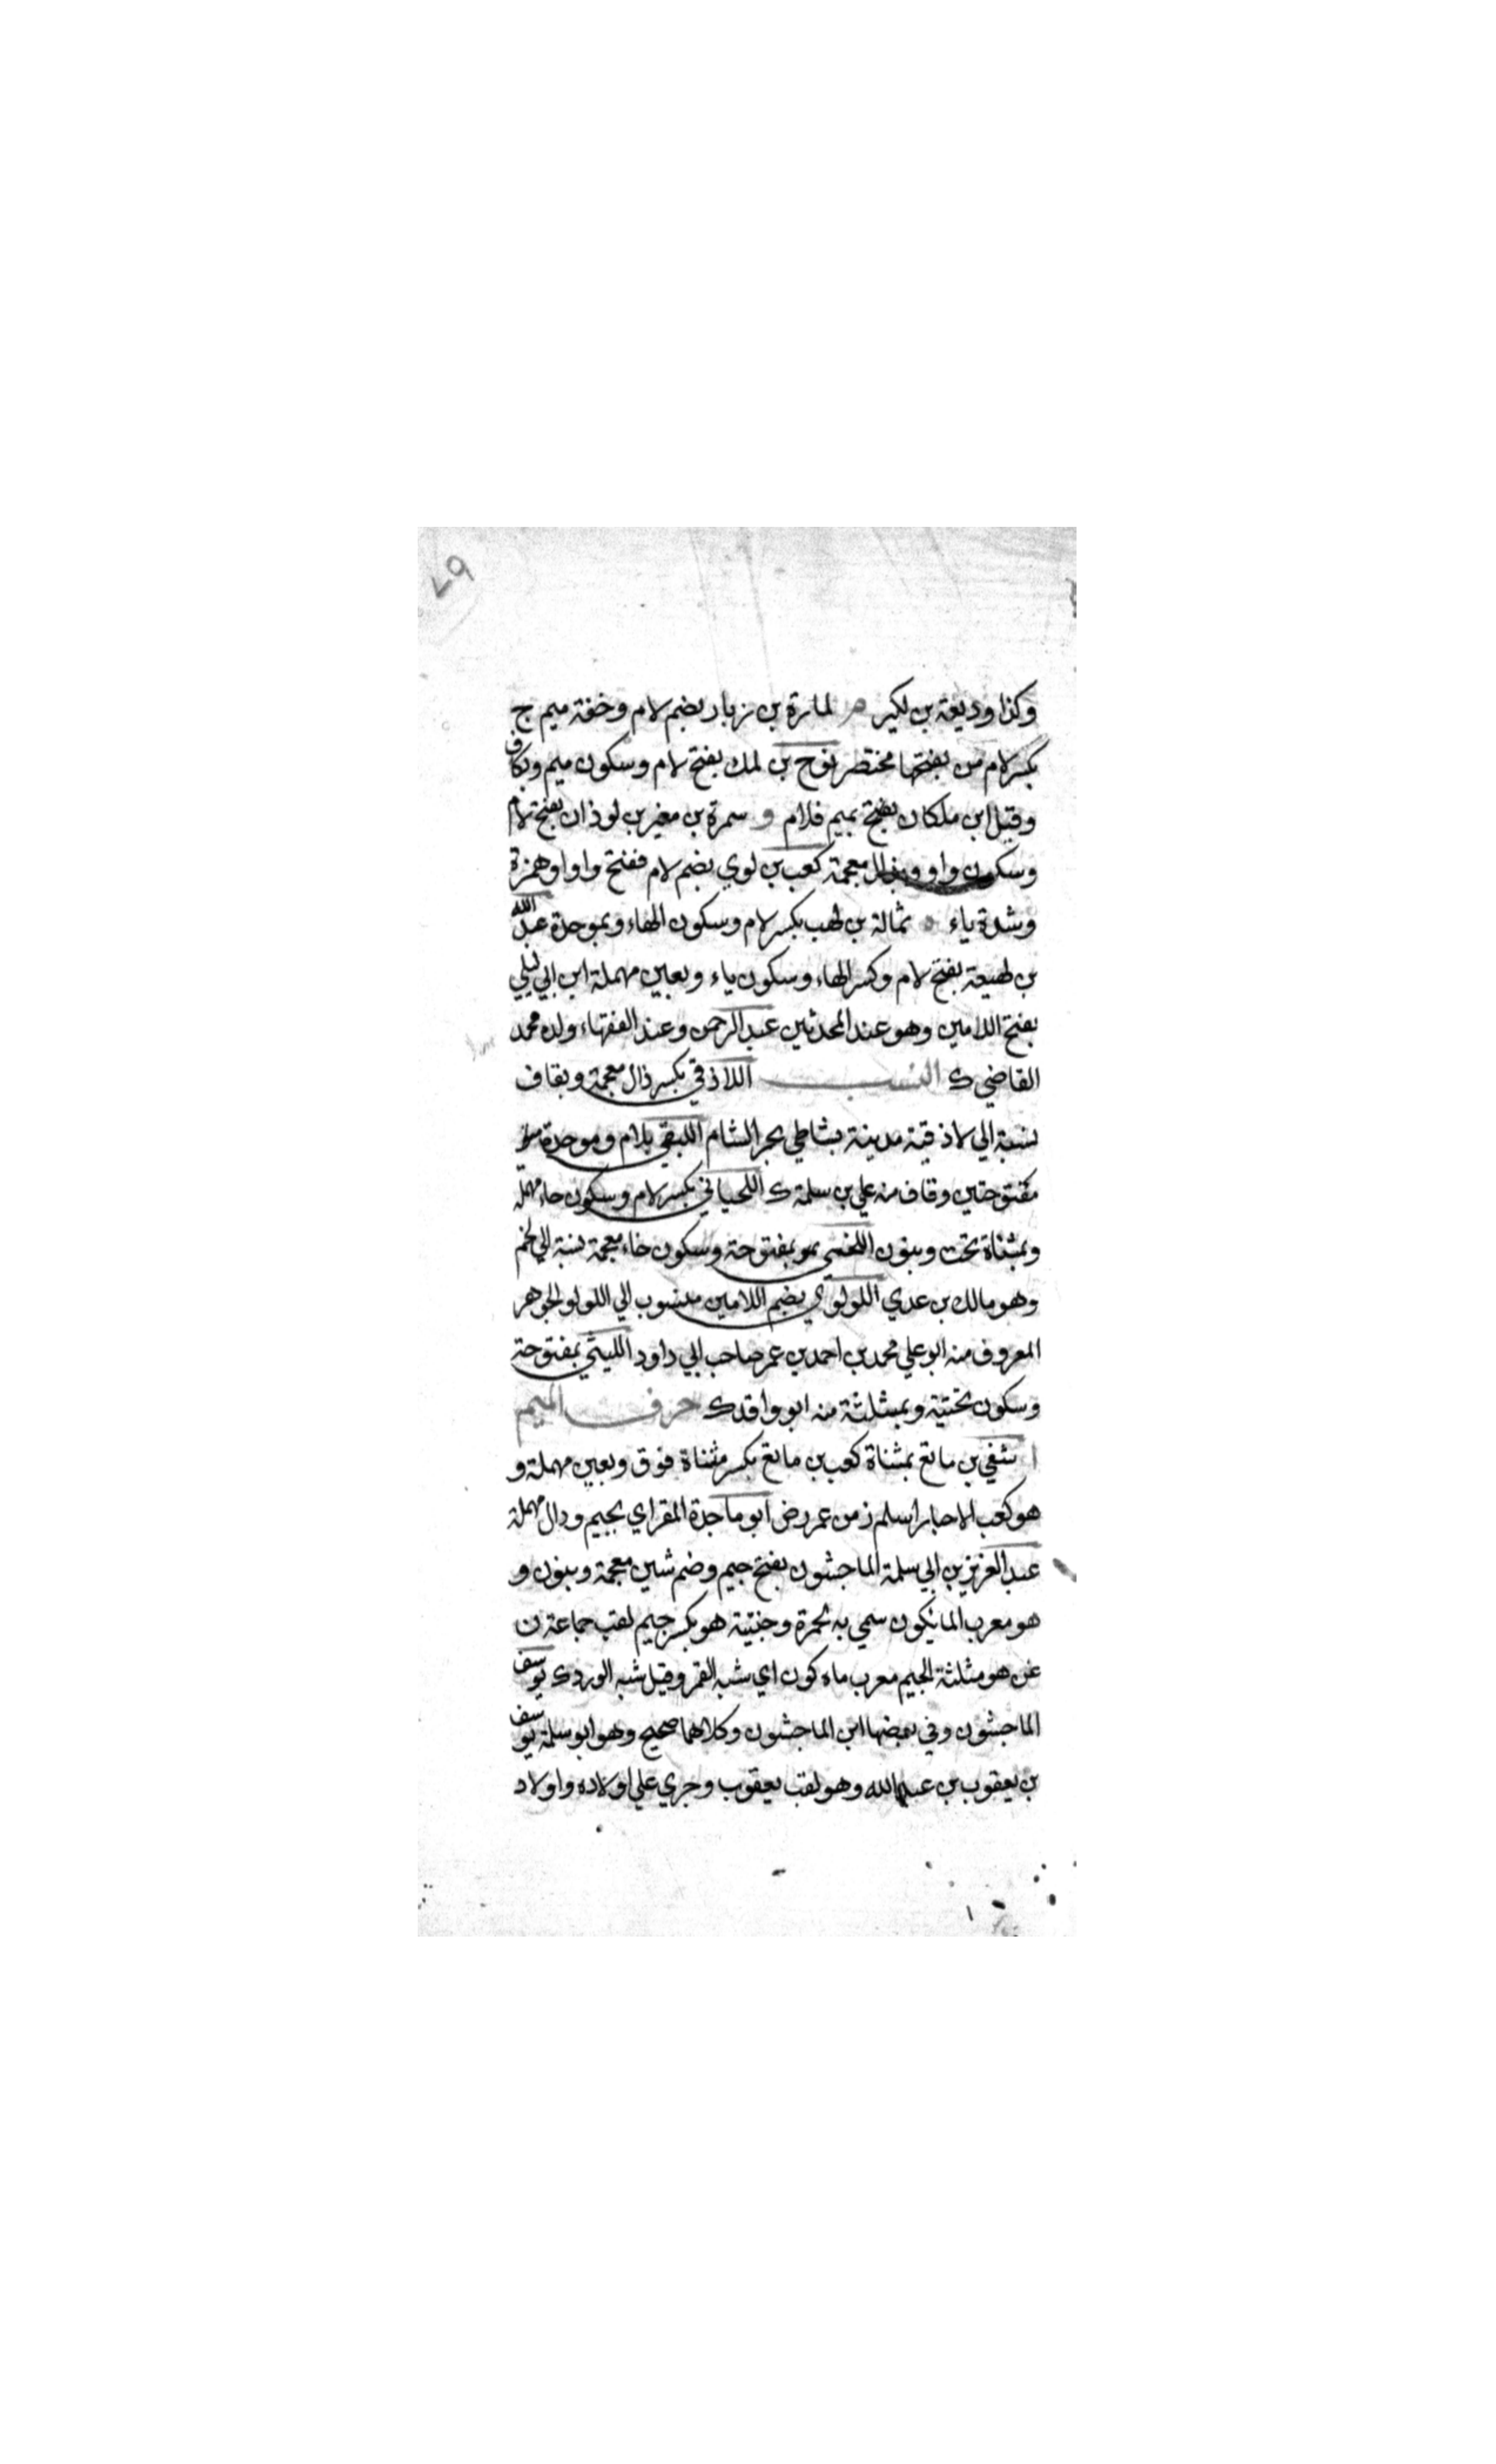 ٧٩
وكذا وديعة بن لكير لمازة بن زبار بضم لام وخفة ميم ج
بكسر لام من يفتحها مختصر نوح بن لمك بفتح لام وسكون ميم وبكاف
وقيل ابن ملكان بفتح بميم فلام و سمرة بن معير بن لوذان بفتح لام
وسكون واو وبذال معجمة كعب بن لوي بضم لام ففتح واو او همزة
وشدة ياء ثمالة بن لهب بكسر لام وسكون الهاء وبموحدة عبد الله
بن لهيعة بفتح لام وكسر الهاء وسكون ياء وبعين مهملة ابن ابي ليلي
بفتح اللامين وهو عند المحدثين عبد الرحمن وعند الفقهاء ولده محمد
القاضي ك النسب اللاذقي بكسر ذال معجمة وبقاف
نسبة الي لاذقية مدينة بشاطي بحر الشام اللبقي بلام وموحدة
مفتوحتين وقاف منه علي بن سلمة ك اللحياني بكسر لام وسكون حاء مهملة
وبمثناة تحت وبنون اللخمي بمفتوحة وسكون خاء معجمة نسبة الي لخم
وهو مالك بن عدي اللولوي بضم اللامين منسوب الي اللولو الجوهر
المعروف منه ابو علي محمد بن احمد بن عمر صاحب ابي داود الليثي بمفتوحة
وسكون تحتية وبمثلثة منه ابو واقد ك حرف الميم
ا شفي بن ماتع بمثناة كعب بن ماتع بكسر مثناة فوق وبعين مهملة و
هو كعب الاحبار اسلم زمن عمر رض ابو ماجدة المقراي بجيم ودال مهملة
عبد العزيز بن ابي سلمة الماجشون بفتح جيم وضم شين معجمة وبنون و
هو معرب الماىكون سمي به لحمرة وجنتيه هو بكسر جيم لقب جماعة ن
غن هو مثلثة الجيم معرب ماه كون اي شبه القمر وقيل شبه الورد ك يوسف
الماجشون وفي بعضها ابن الماجشون وكلاهما صحيح وهو ابو سلمة يوسف
بن يعقوب بن عبد الله وهو لقب يعقوب وجري علي اولاده واولاد